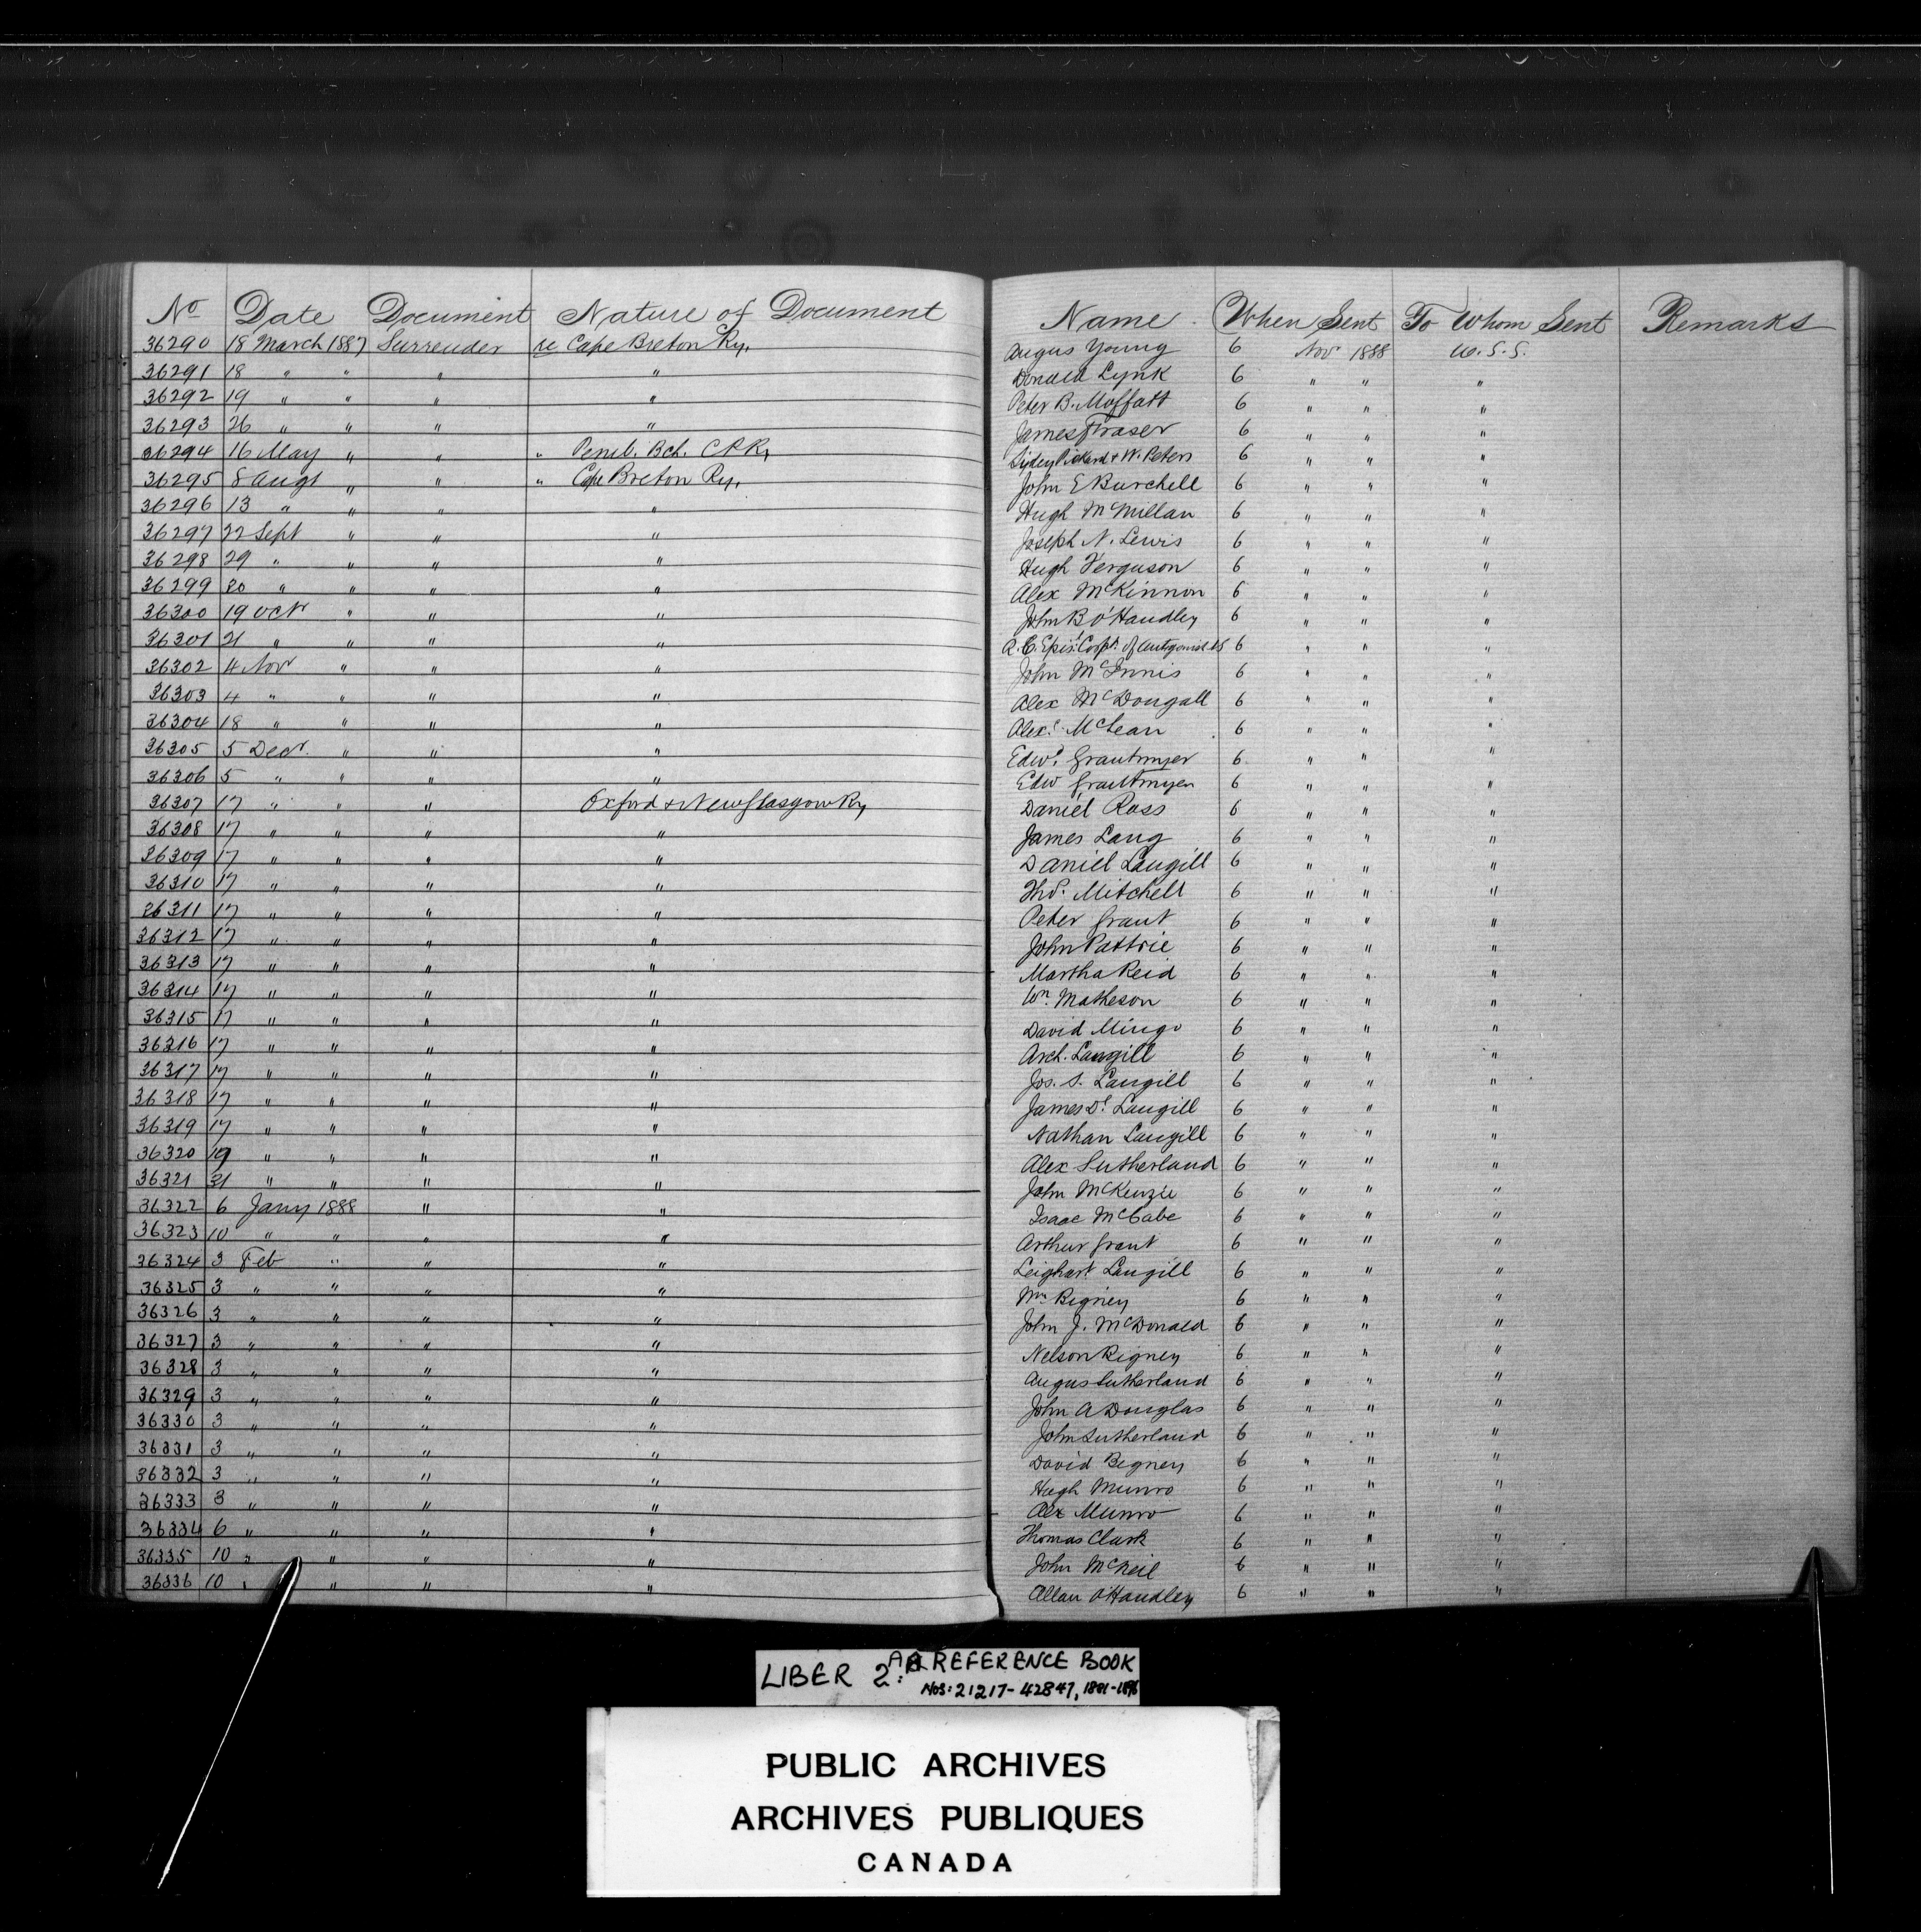 No Date Document Nature of Document Name When Sent To Whom Sent Remarks
36290 18 March 1887 Surrender re Cape Breton Ry. Angus Young 6 Nov 1888 U.S.S.
36291 18 " " " " Donald Lynk 6 " " "
36292 19 " " " " Peter B. Moffatt 6 " " "
36293 26 " " " " James Fraser 6 " " "
36294 16 May " " " Pemb. Bch. CPRy Sydey Pickard + W. Peters 6 " " "
36295 8 Augt " " " Cape Breton Ry. John E Burchell 6 " " "
36296 13 " " " " Hugh McMillan 6 " " "
36297 22 Sept " " " Joseph N. Lewis 6 " " "
36298 29 " " " Hugh Ferguson 6 " " "
36299 30 " " " " Alex McKinnon 6 " " "
36300 19 Oct " " " John B O'Handley 6 " " "
36301 21 " " " " R. C. Epis'l Corp'n of Antigonish NS 6 " " "
36302 4 Nov " " " John McInnis 6 " " "
36303 4 " " " " Alex McDougall 6 " " "
36304 18 " " " " Alexr McLean 6 " " "
36305 5 Decr. " " " Edwd Grantmyer 6 " " "
36306 5 " " " " Edw Grantmyer 6 " " "
36307 17 " " " Oxford & New Glasgow Ry Daniel Ross 6 " " "
36308 17 " " " " James Lang 6 " " "
36309 17 " " " " Daniel Langill 6 " " "
36310 17 " " " " Thos. Mitchell 6 " " "
36311 17 " " " " Peter Grant 6 " " "
36312 17 " " " " John Pattrie 6 " " "
36313 17 " " " " Martha Reid 6 " " "
36314 17 " " " " Wm. Matheson 6 " " "
36315 17 " " " " David Mingo 6 " " "
36316 17 " " " " Arch. Langill 6 " " "
36317 17 " " " " Jos. S. Langill 6 " " "
36318 17 " " " " James D. Langill 6 " " "
36319 17 " " " " Nathan Langill 6 " " "
36320 19 " " " " Alex Sutherland 6 " " "
36321 31 " " " " John McKenzie 6 " " "
36322 6 Jany 1888 " " Isaac McCabe 6 " " "
36323 10 " " " " Arthur Grant 6 " " "
36324 3 Feb " " " Leighart Langill 6 " " "
36325 3 " " " " Wm Bigney 6 " " "
36326 3 " " " " John J. McDonald 6 " " "
36327 3 " " " " Nelson Bigney 6 " " "
36328 3 " " " " Angus Sutherland 6 " " "
36329 3 " " " " John A Douglas 6 " " "
36330 3 " " " " John Sutherland 6 " " "
36331 3 " " " " David Bigney 6 " " "
36332 3 " " " " Hugh Munro 6 " " "
36333 3 " " " " Alex Munro 6 " " "
36334 6 " " " " Thomas Clark 6 " " "
36335 10 " " " " John McNeil 6 " " "
36336 10 " " " " Allan O'Handley 6 " " "
LIBER 2: REFERENCE BOOK
Nos: 21217-42847, 1881-1896
PUBLIC ARCHIVES
ARCHIVES PUBLIQUES
CANADA